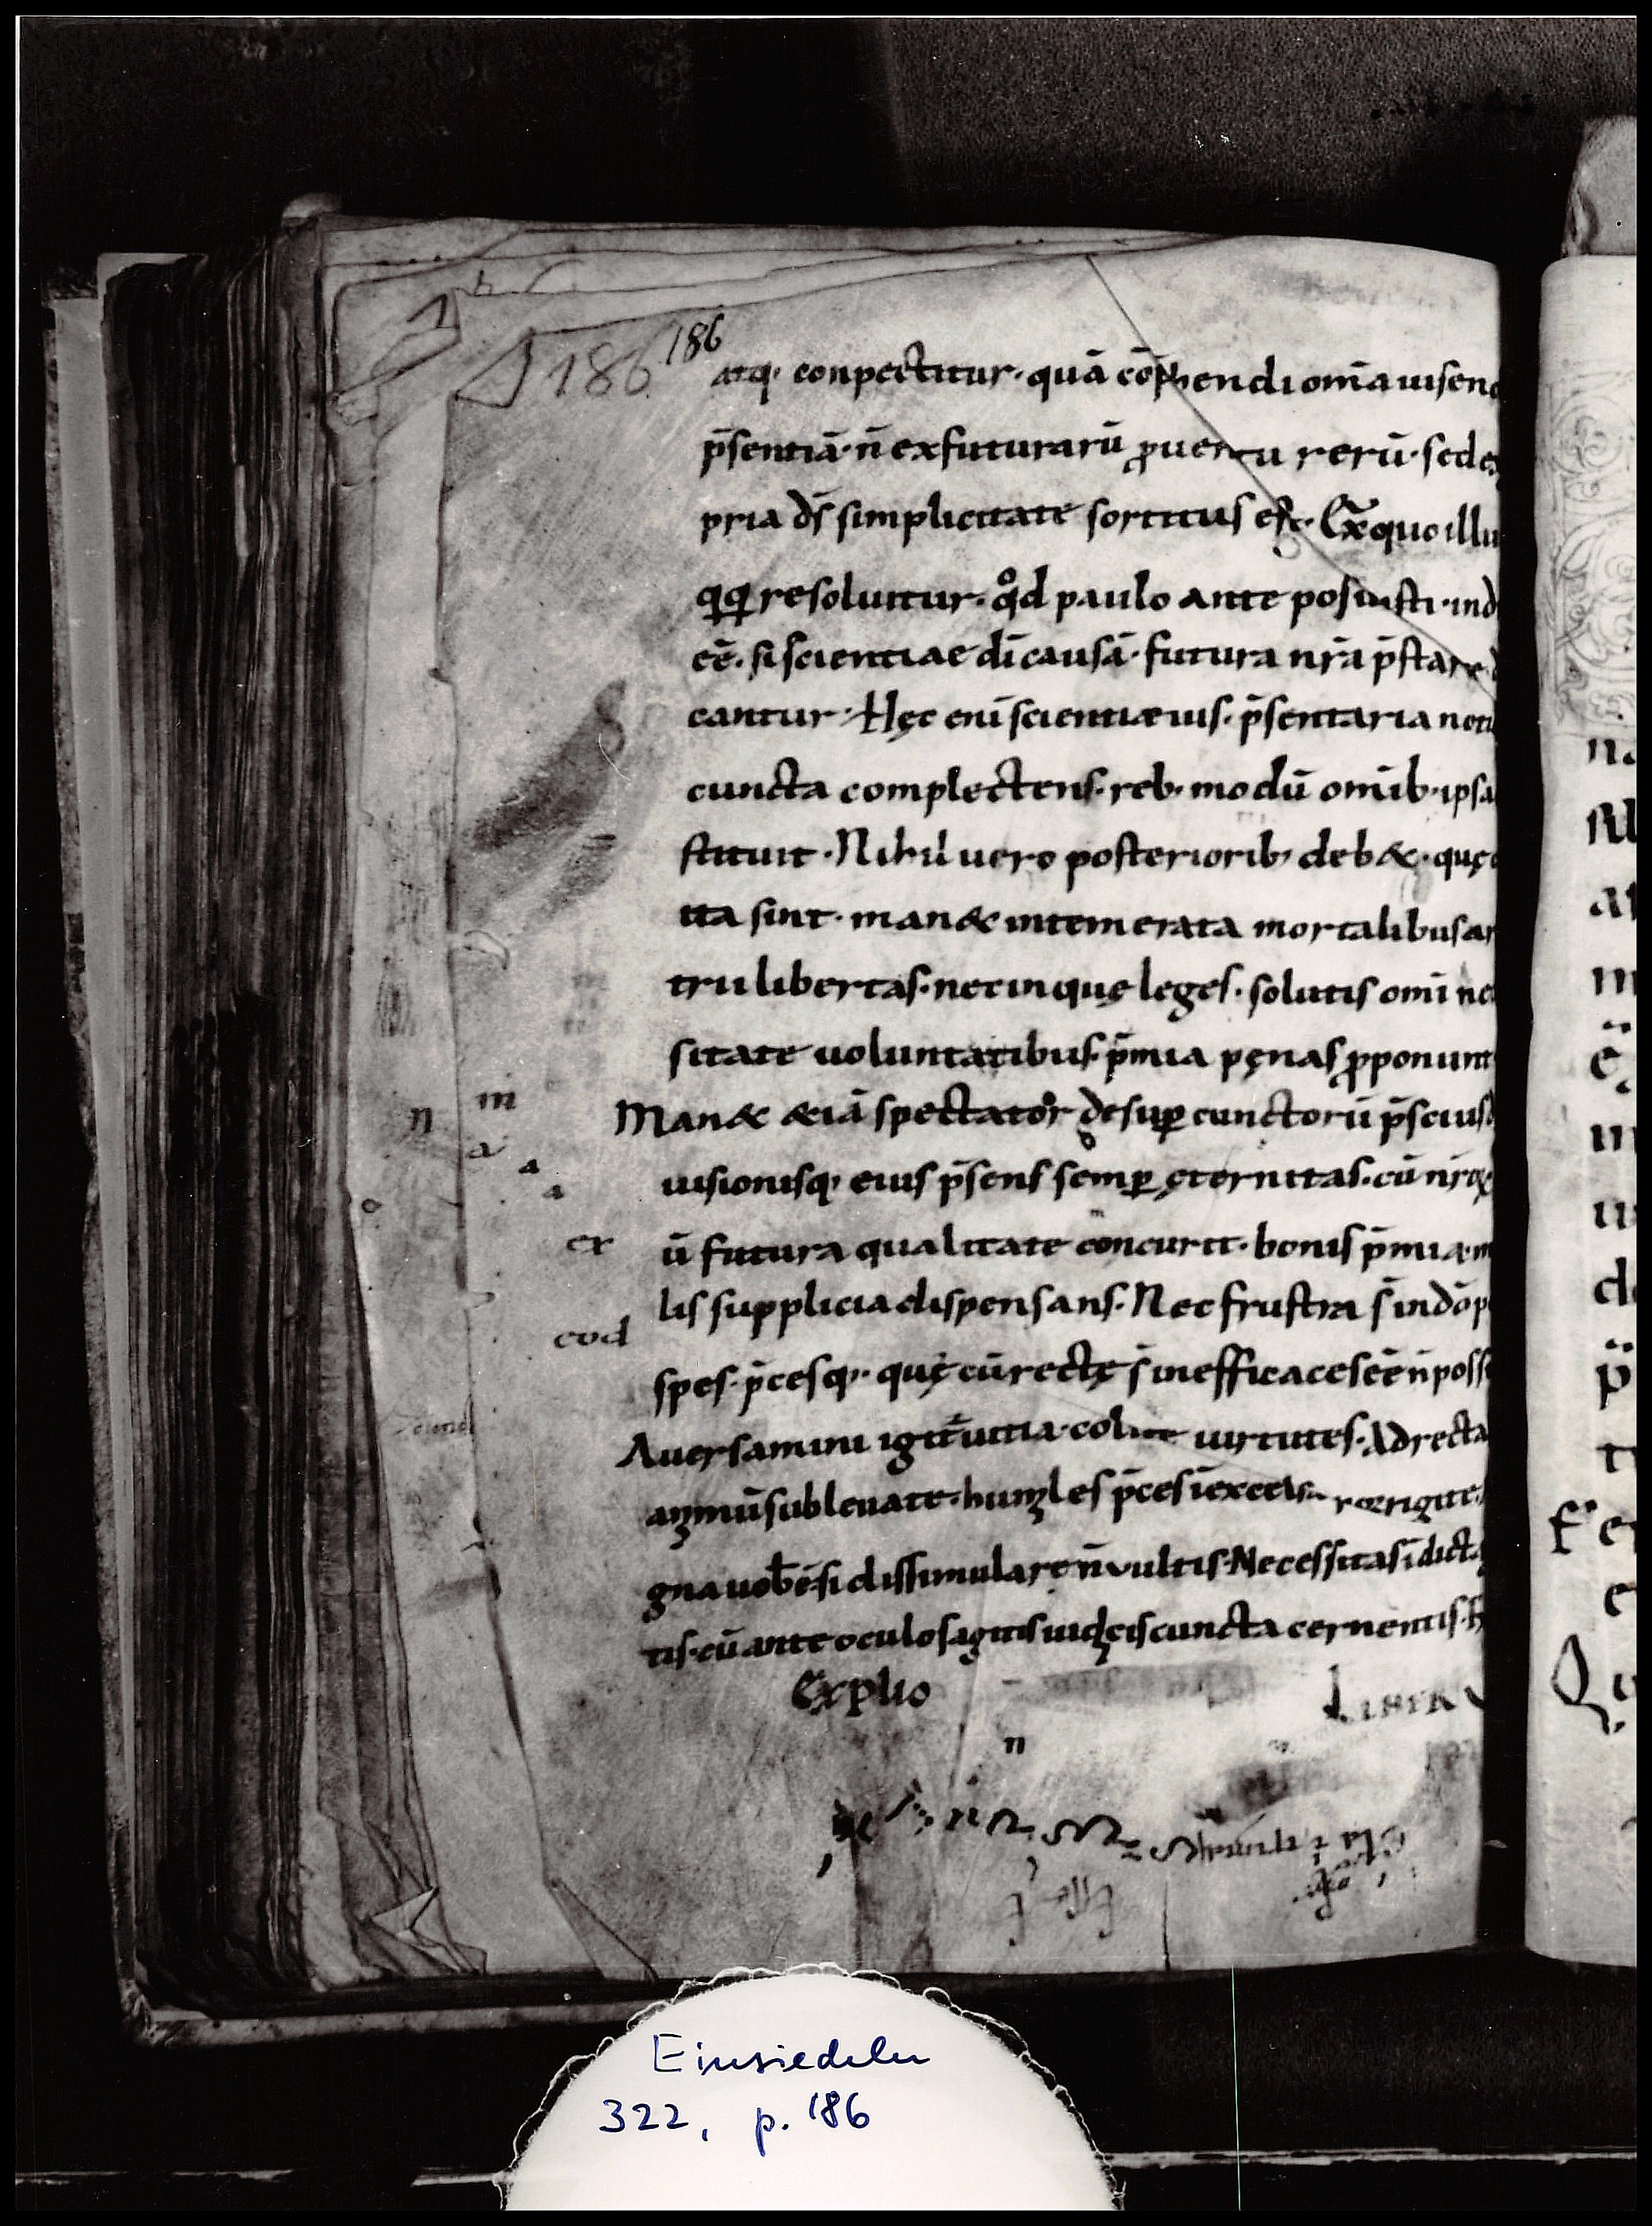 186 186
atq· conpectitur· quā cōp̄hendi om̄a uisend
p̄sentiā· n̄ exfuturarū ꝓuentu rerū· sed ex
pria ds̄ simplicitate sortitus est· Ex quo illu
qq; resoluitur· qd̊ paulo ante posuisti· ind
eē· si scientiae dī causā· futura nr̄a p̄stare d
cantur· Hęc enī scientiæ uis· p̄sentaria noti
cuncta complectens· reb· modū om̄ib· ipsa
stituit· Nihil uero posterioribꝰ deb&· quę c
ita sint· man& intemerata mortalibus ar
trii libertas· nec inquę leges· solutis om̄i ne
sitate uoluntatibus· p̄mia pęnas ꝓponunt
n m
Man& &iā spectator desuꝑ cunctorū p̄scius d
a
a
a
uisionisq· eius p̄sens semꝑ ęternitas· cū nr̄oꝝ
o
er
ū futura qualitate concurit· bonis p̄mia m
lis supplicia dispensans· Nec frustra s̄ in dō p
eod
spes· p̄cesq· quę cū rectę s̄ inefficaces eē n̄ poss
Auersamini igit̄ uitia· colite uirtutes· Ad recta
animū subleuate· humiles p̄ces ī excelsa porrigite·
gna uob̄ ē· si dissimulare n̄ vultis· Necessitas īdicta
tis· cū ante oculos agitis iudicis cuncta cernentis· F
Explıo LIBER V
n
Einsiedeln
322, p. 186